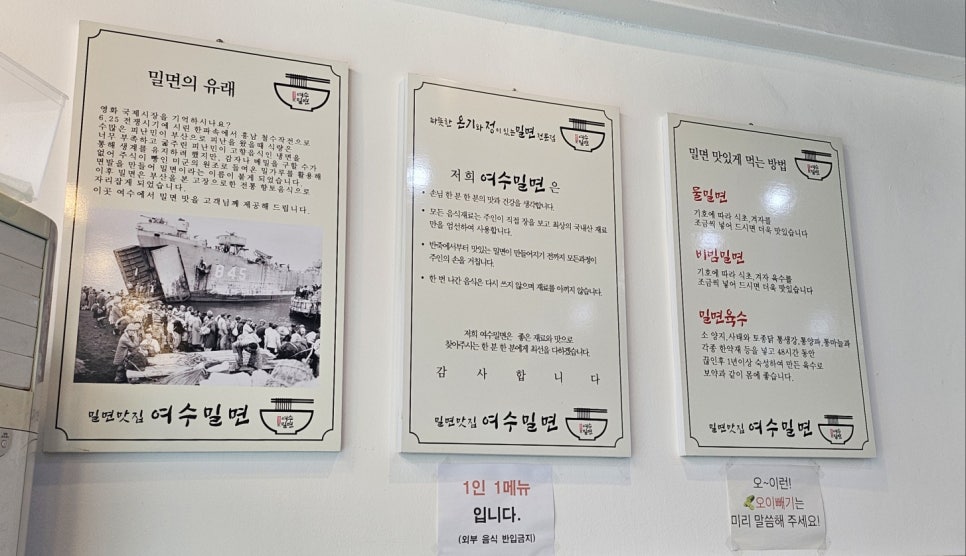 밀면의 유래
여수
밀면
영화 국제시장을 기억하시나요?
6.25 전쟁시기에 시린 한파속에서 흥남 철수작전으로
수많은 피난민이 부산으로 피난을 왔을때 식량은
너무 부족하고 굶주린 피난민이 고향음식인 냉면을
통해 생계를 유지하려 했지만, 감자나 메밀을 구할 수가
없어 주식이 빵인 미군의 원조로 들여온 밀가루를 활용해
면발을 만들어 밀면이라는 이름이 붙게 되었습니다.
이후 밀면은 부산을 본 고장으로한 전통 향토음식으로
자리잡게 되었습니다.
이곳 여수에서 밀면 맛을 고객님께 제공해 드립니다.
B45
밀면맛집 여수밀면
여수
밀면
따뜻한 온기와 정이 있는 밀면 전문점
여수
밀면
저희 여수밀면은
• 손님 한 분 한 분의 맛과 건강을 생각합니다.
• 모든 음식재료는 주인이 직접 장을 보고 최상의 국내산 재료
만을 엄선하여 사용합니다.
• 반죽에서부터 맛있는 밀면이 만들어지기 전까지 모든과정이
주인의 손을 거칩니다.
• 한 번 나간 음식은 다시 쓰지 않으며 재료를 아끼지 않습니다.
저희 여수밀면은 좋은 재료와 맛으로
찾아주시는 한 분 한 분에게 최선을 다하겠습니다.
감 사 합 니 다
밀면맛집 여수밀면
여수
밀면
밀면 맛있게 먹는 방법
여수
밀면
물밀면
기호에 따라 식초,겨자를
조금씩 넣어 드시면 더욱 맛있습니다
비빔밀면
기호에 따라 식초,겨자,육수를
조금씩 넣어 드시면 더욱 맛있습니다
밀면육수
소 양지,사태와 토종닭,통생강,통양파,통마늘과
각종 한약재 등을 넣고 48시간 동안
끓인후 1년이상 숙성하여 만든 육수로
보약과 같이 몸에 좋습니다.
밀면맛집 여수밀면
여수
밀면
1인 1메뉴
입니다.
(외부 음식 반입금지)
오~이런!
오이빼기는
미리 말씀해 주세요!